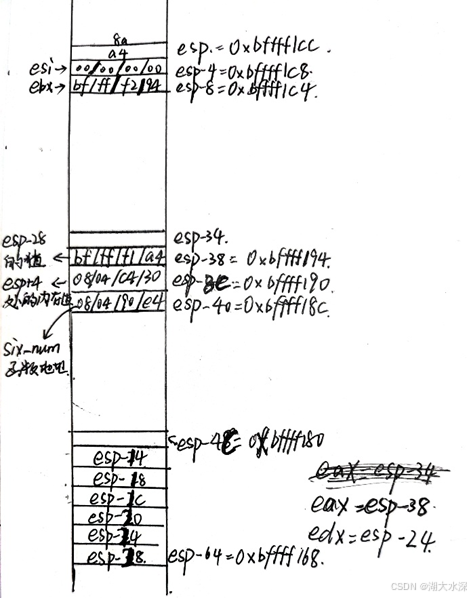 8a
a4 esp. = 0xbffff1cc.
esi→ 00/00/00/00 esp-4=0xbffff1c8.
ebx→ bf/ff/f2/94 esp-8=0xbffff1c4.
esp-28 esp-34.
的值← bf/ff/f1/a4 esp-38=0xbffff194.
esp+4← 08/04/c4/30 esp-3c=0xbffff190.
处的内存值 08/04/90/e4 esp-40=0xbffff18c.
six_num
函数地址
esp-4c=0xbffff180
esp-14
esp-18
esp-1c
esp-20
esp-24
esp-28. esp-64=0xbffff168.
eax=esp-34
eax=esp-38.
edx=esp-24.
CSDN @湖大水深